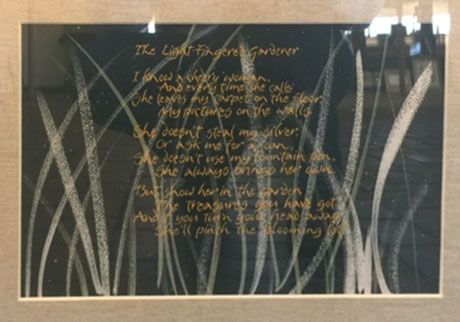 The Light Fingered Gardener
I know a sheery woman,
And every time she calls
She leaves my carpet on the floor
My pictures on the walls.
She doesn't steal my silver;
Or ask me for a loan.
She doesn't use my fountain pen,
She always brings her own.
But show her in the garden
The treasures you have got
And if you turn your head away
She'll pinch the blooming lot